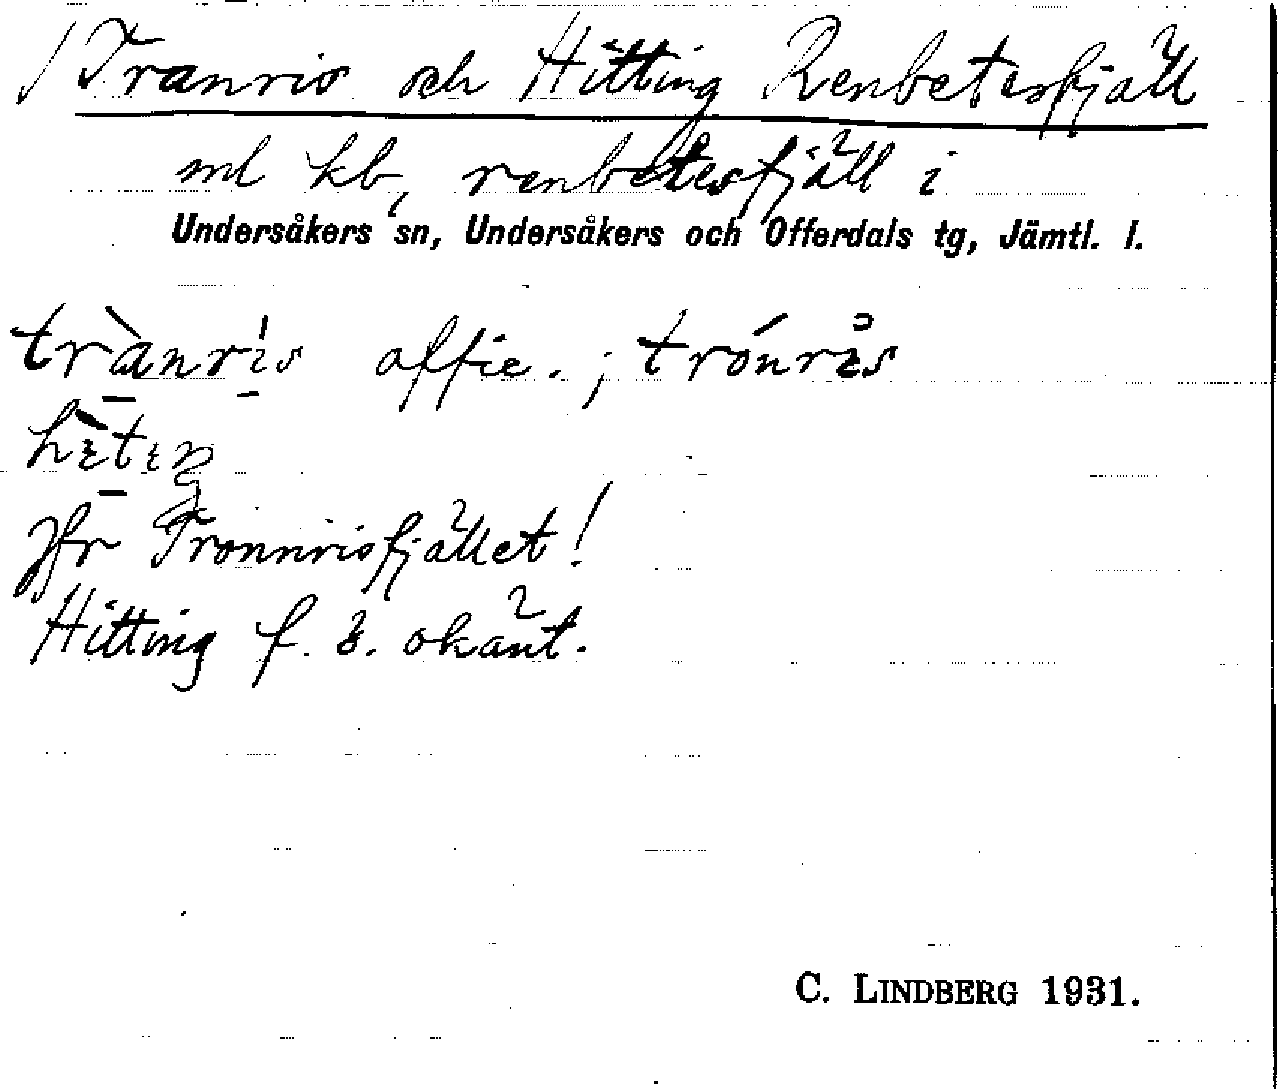 / Tranris och Hitting Renbetesfjäll
enl kb, renbetesfjäll i
Undersåkers sn, Undersåkers och Offerdals tg, Jämtl. l.
trànrís offic. ; trónrɩs
Jfr Tronnrisfjället!
Hitting f. ö. okänt.
C. LINDBERG 1931.